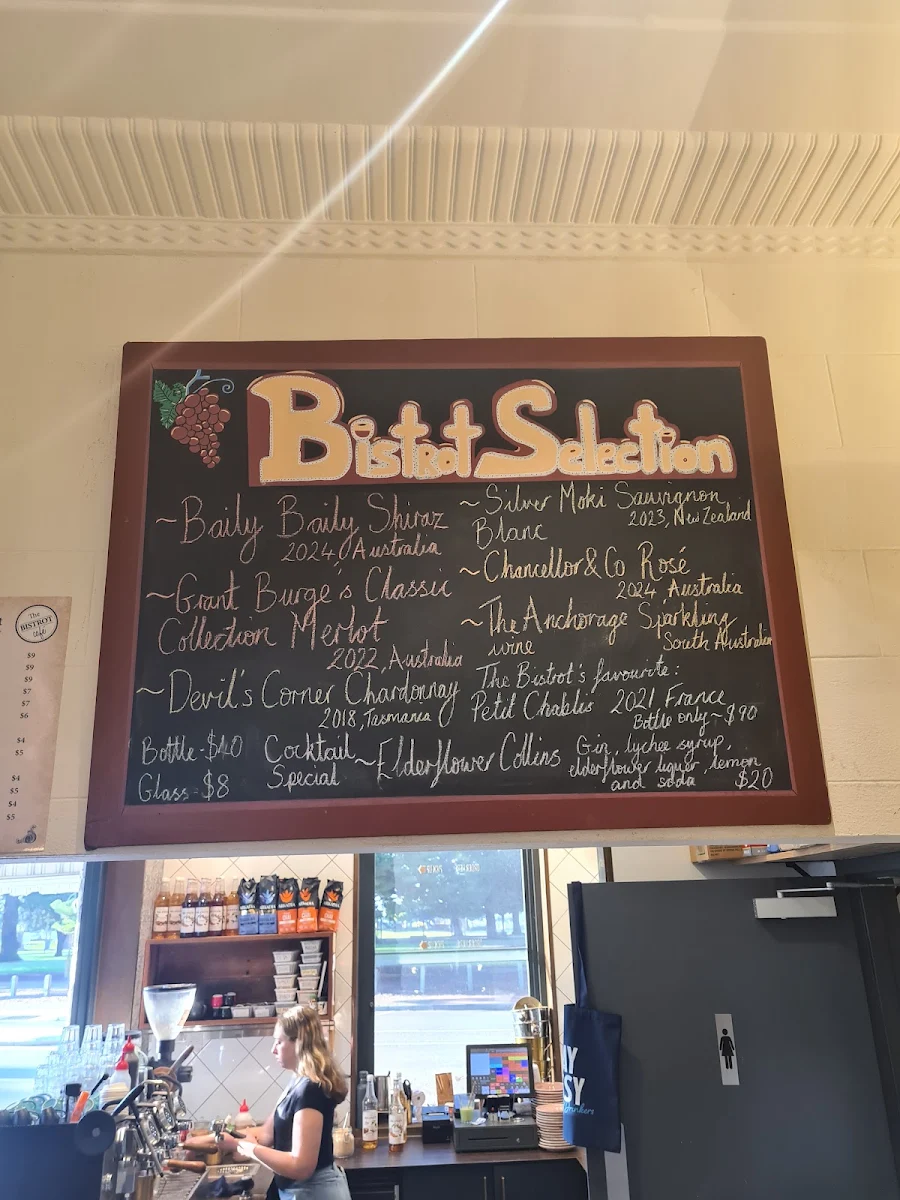 Bistrot Selection
~Baily Baily Shiraz
2024, Australia
~Grant Burge's Classic
Collection Merlot
2022, Australia
~Devil's Corner Chardonnay
2018, Tasmania
Bottle-$40
Glass-$8
~Silver Moki Sauvignon
2023, New Zealand
Blanc
~Chancellor&Co Rosé
2024 Australia
~The Anchorage Sparkling
wine
South Australia
The Bistrot's favourite:
Petit Chablis 2021, France
Bottle only~$90
Cocktail
Special
~Elderflower Collins
Gin, lychee syrup,
elderflower liquer, lemon
and soda
$20
The
BISTROT
Café
$9
$9
$9
$7
$7
$6
$4
$5
$4
$5
$4
$5